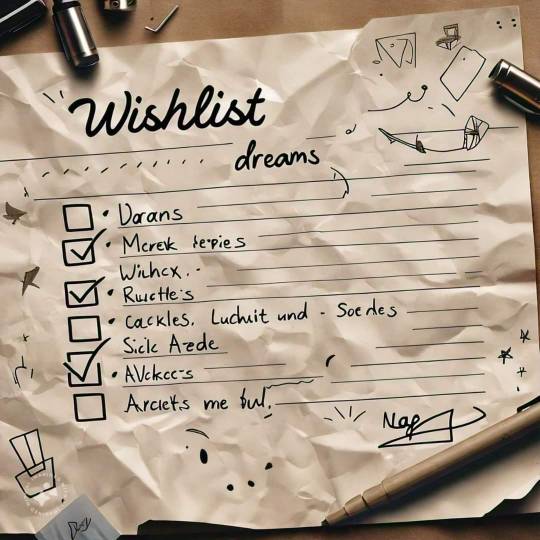 Wishlist
dreams
Dorans
Merek
Wihcx.
Ructtle's
cackles. Luchuit und - Soedes
Sicle Azede
AVckces
Arciets me bul.
Nap